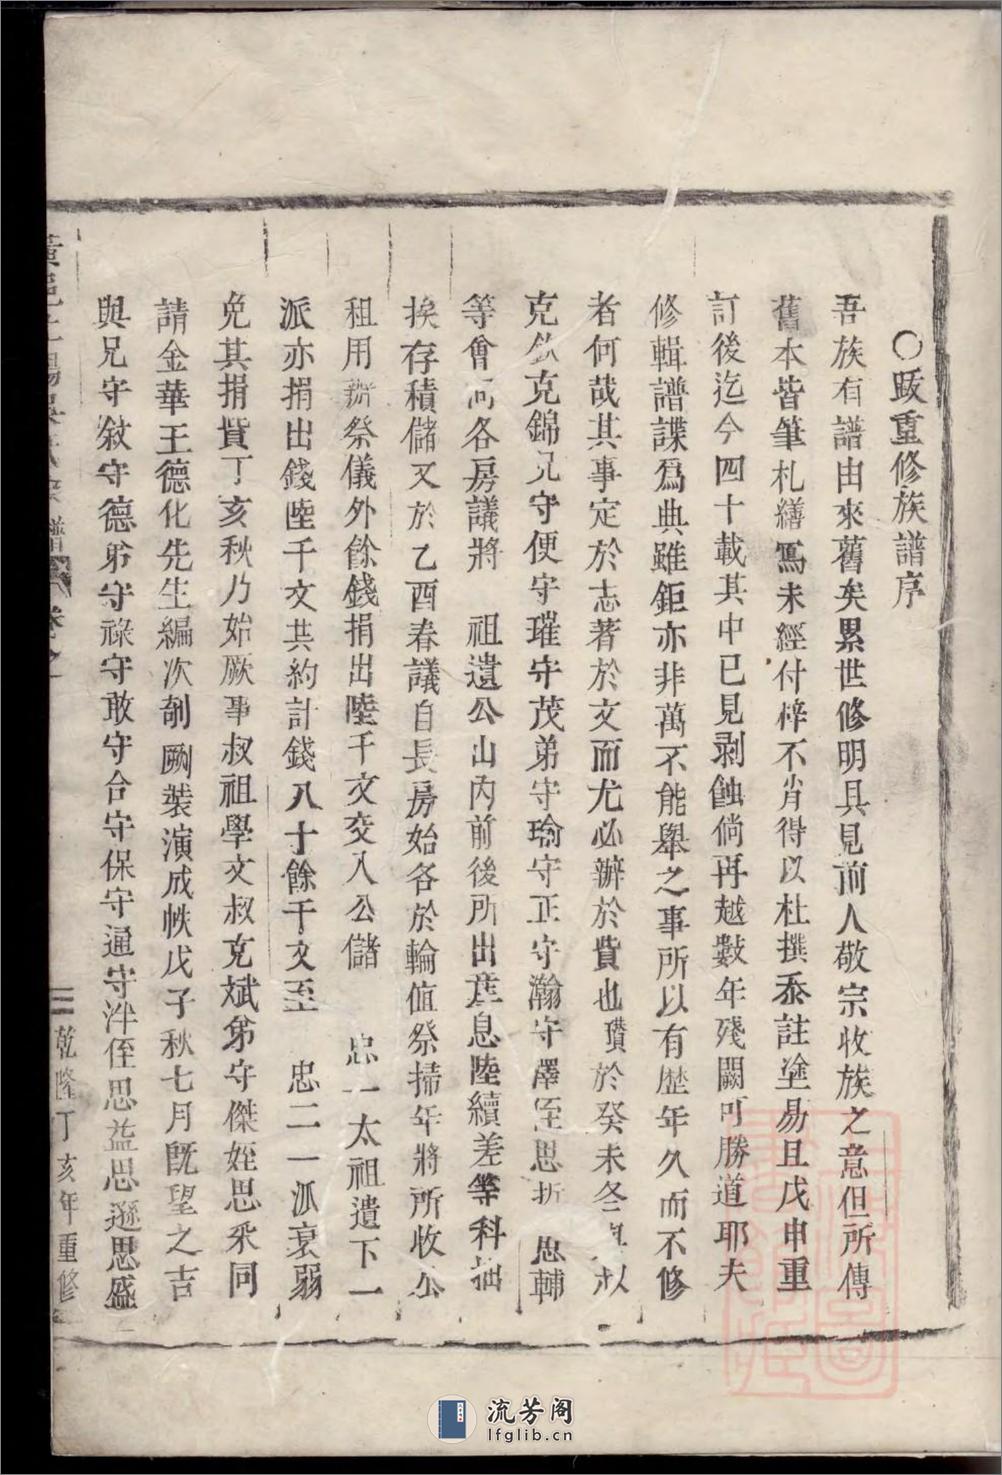 〇跋重修族譜序
吾族有譜由來舊矣累世修明具見前人敬宗收族之意但所傳
舊本皆筆札繕寫未經付梓不肖得以杜撰忝註塗易且戊申重
訂後迄今四十載其中已見剥蝕倘再越數年殘闕可勝道耶夫
修輯譜諜爲典雖鉅亦非萬不能舉之事所以有歷年久而不修
者何哉其事定於志著於文而尤必辦於費也瓚於癸未冬與叔
克欽克錦兄守便守璀守茂弟守瑜守正守瀚守澤侄思折思輔
等會同各房議將 祖遺公山内前後所出產息陸續差等科抽
挨存積儲又於乙酉春議自長房始各於輪值祭掃年將所收公
租用辦祭儀外餘錢捐出陸千文交入公儲 忠一太祖遺下一
派亦捐出錢陸千文共約計錢八十餘千文至 忠二一派衰弱
免其捐貲丁亥秋乃始厥事叔祖學文叔克斌弟守傑姪思釆同
請金華王德化先生編次剞劂裝演成帙戊子秋七月既望之吉
與兄守敘守德弟守祿守敢守合守保守通守泮侄思益思遜思盛
譜 卷之
三 乾隆丁亥年重修
流芳阁
lfglib.cn